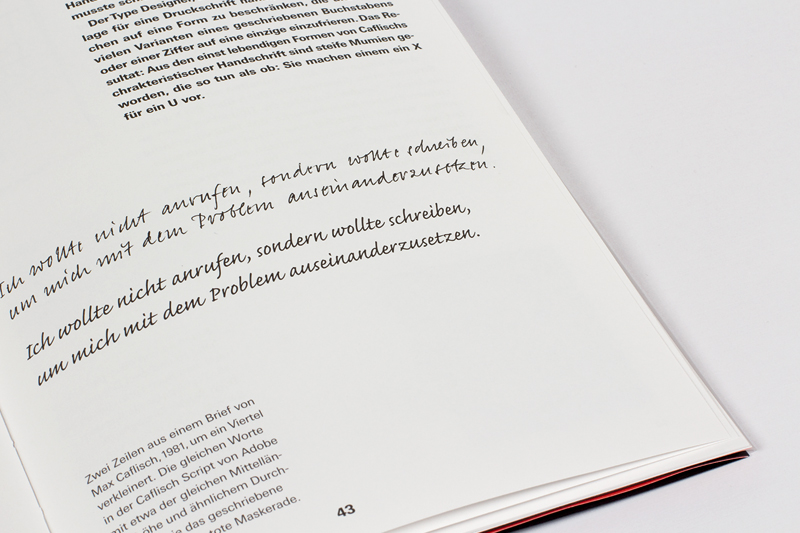 musste
Der Type Designer,
lage für eine Druckschrift
chen auf eine Form zu beschränken, die
vielen Varianten eines geschriebenen Buchstabens
oder einer Ziffer auf eine einzige einzufrieren. Das Re-
sultat: Aus den einst lebendigen Formen von Caflischs
chrakteristischer Handschrift sind steife Mumien ge-
worden, die so tun als ob: Sie machen einem ein X
für ein U vor.
Ich wollte nicht anrufen, sondern wollte schreiben,
um mich mit dem Problem auseinanderzusetzen.
Ich wollte nicht anrufen, sondern wollte schreiben,
um mich mit dem Problem auseinanderzusetzen.
Zwei Zeilen aus einem Brief von
Max Caflisch, 1981, um ein Viertel
verkleinert. Die gleichen Worte
in der Caflisch Script von Adobe
mit etwa der gleichen Mittellän-
höhe und ähnlichem Durch-
das geschriebene
tote Maskerade.
43